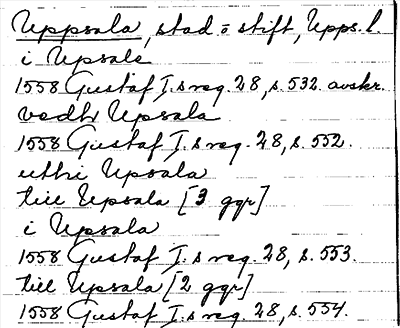 Uppsala, stad o stift, Upps. l.
i Upsale
1558 Gustaf I:s reg. 28, s. 532. avskr.
vedh Upsala
1558 Gustaf I:s reg. 28, s. 552.
uthi Upsala
till Upsala [3 ggr]
i Upsala
1558 Gustaf I:s reg. 28, s. 553.
till Upsala [2 ggr]
1558 Gustaf I:s reg. 28, s. 554.